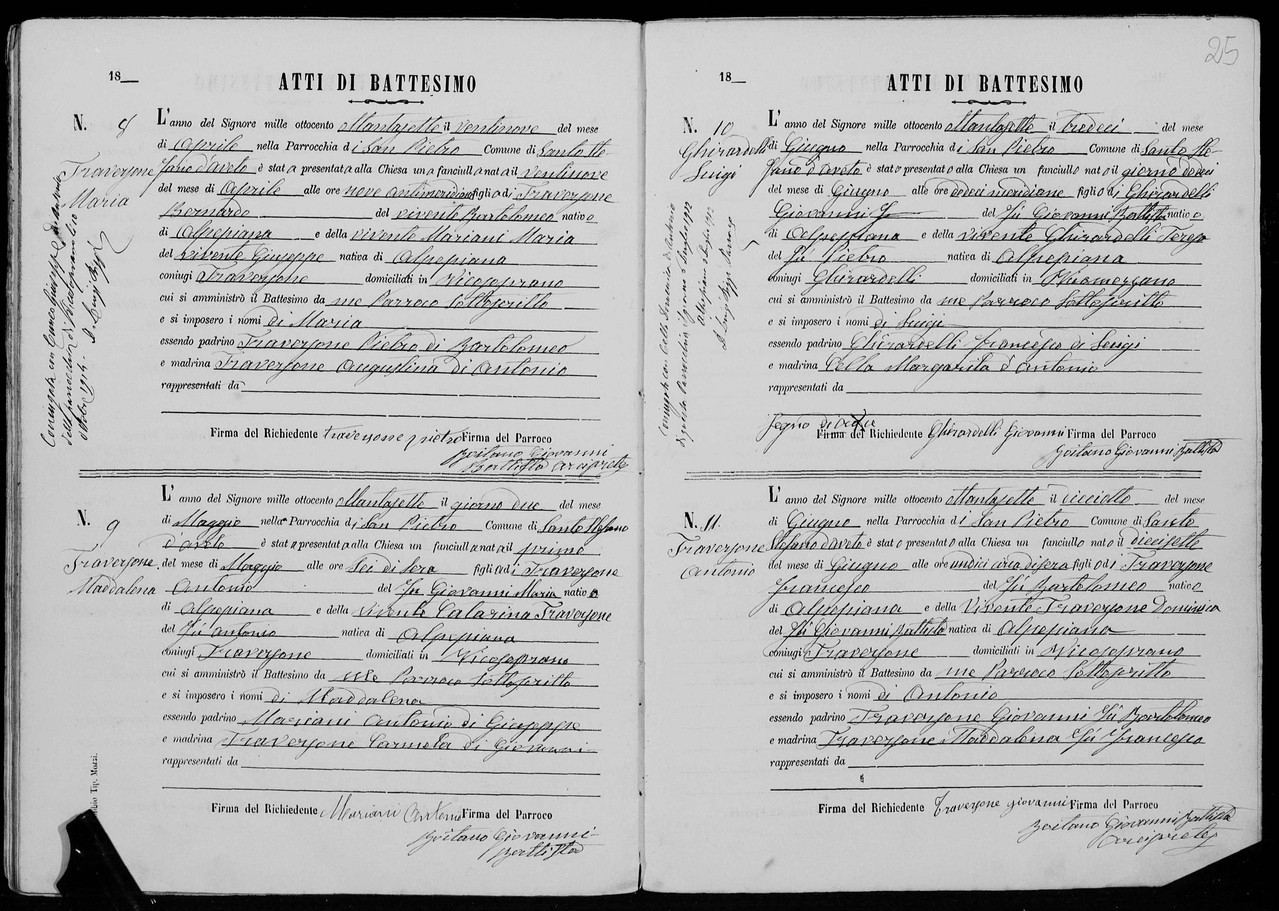 18
ATTI DI BATTESIMO
N. 8
Traversone
Maria
L'anno del Signore mille ottocento ottantasette il ventinove del mese
di Aprile nella Parrocchia di San Pietro Comune di Santo Ste
fano d'aveto è stata presentata alla Chiesa un a fanciulla nata il ventinove
del mese di Aprile alle ore nove antimeridiane figlia di Traversone
Bernardo del vivente Bartolomeo nativo
di Alpepiana e della vivente Mariani Maria
del vivente Giuseppe nativa di Alpepiana
coniugi Traversone domiciliati in Vicosoprano
cui si amministrò il Battesimo da me Parroco Sottoscritto
e si imposero i nomi di Maria
essendo padrino Traversone Pietro di Bartolomeo
e madrina Traversone Augustina di Antonio
rappresentati da
Firma del Richiedente traversone pietro Firma del Parroco
Boitano Giovanni
Battista arciprete
N. 9
Traversone
Maddalena
L'anno del Signore mille ottocento ottantasette il giorno due del mese
di Maggio nella Parrocchia di San Pietro Comune di Santo Stefano
d'aveto è stata presentata alla Chiesa un fanciulla nata il primo
del mese di Maggio alle ore Sei di Sera figlia di Traversone
Antonio del fù Giovanni Maria nativo
di Alpepiana e della vivente Catarina Traversone
del fù Antonio nativa di Alpepiana
coniugi Traversone domiciliati in Vicosoprano
cui si amministrò il Battesimo da me Parroco Sottoscritto
e si imposero i nomi di Maddalena
essendo padrino Mariani Antonio di Giuseppe
e madrina Traversone Carmela di Giovanni
rappresentati da
Firma del Richiedente Mariani Antonio Firma del Parroco
Boitano Giovanni
Battista
Tip. Mozzi.
25
18
ATTI DI BATTESIMO
N. 10
Ghirardelli
Luigi
L'anno del Signore mille ottocento ottantasette il Tredeci del mese
di Giugno nella Parrocchia di San Pietro Comune di Santo Ste
fano d'aveto è stato presentato alla Chiesa un fanciullo nato il giorno dodeci
del mese di Giugno alle ore dodeci meridiane figlio di Ghirardelli
Giovanni del fù Giovanni Battista nativo
di Alpepiana e della vivente Ghirardelli Teresa
del fù Pietro nativa di Alpepiana
coniugi Ghirardelli domiciliati in
cui si amministrò il Battesimo da me Parroco Sottoscritto
e si imposero i nomi di Luigi
essendo padrino Ghirardelli Francesco di Luigi
e madrina Cella Margarita d'Antonio
rappresentati da
Segno di
Firma del Richiedente Ghirardelli Giovanni Firma del Parroco
Boitano Giovanni Battista
N. 11.
Traversone
Antonio
L'anno del Signore mille ottocento ottantasette il dicciotto del mese
di Giugno nella Parrocchia di San Pietro Comune di Santo
Stefano d'aveto è stato presentato alla Chiesa un fanciullo nato il diccisette
del mese di Giugno alle ore undici circa di sera figlio di Traversone
Francesco del fù Bartolomeo nativo
di Alpepiana e della Vivente Traversone Dominica
del fù Giovanni Battista nativa di Alpepiana
coniugi Traversone domiciliati in Vicosoprano
cui si amministrò il Battesimo da me Parroco Sottoscritto
e si imposero i nomi di Antonio
essendo padrino Traversone Giovanni fù Bartolomeo
e madrina Traversone Maddalena fù Francesco
rappresentati da
Firma del Richiedente traversone giovanni Firma del Parroco
Boitano Giovanni Battista
arciprete